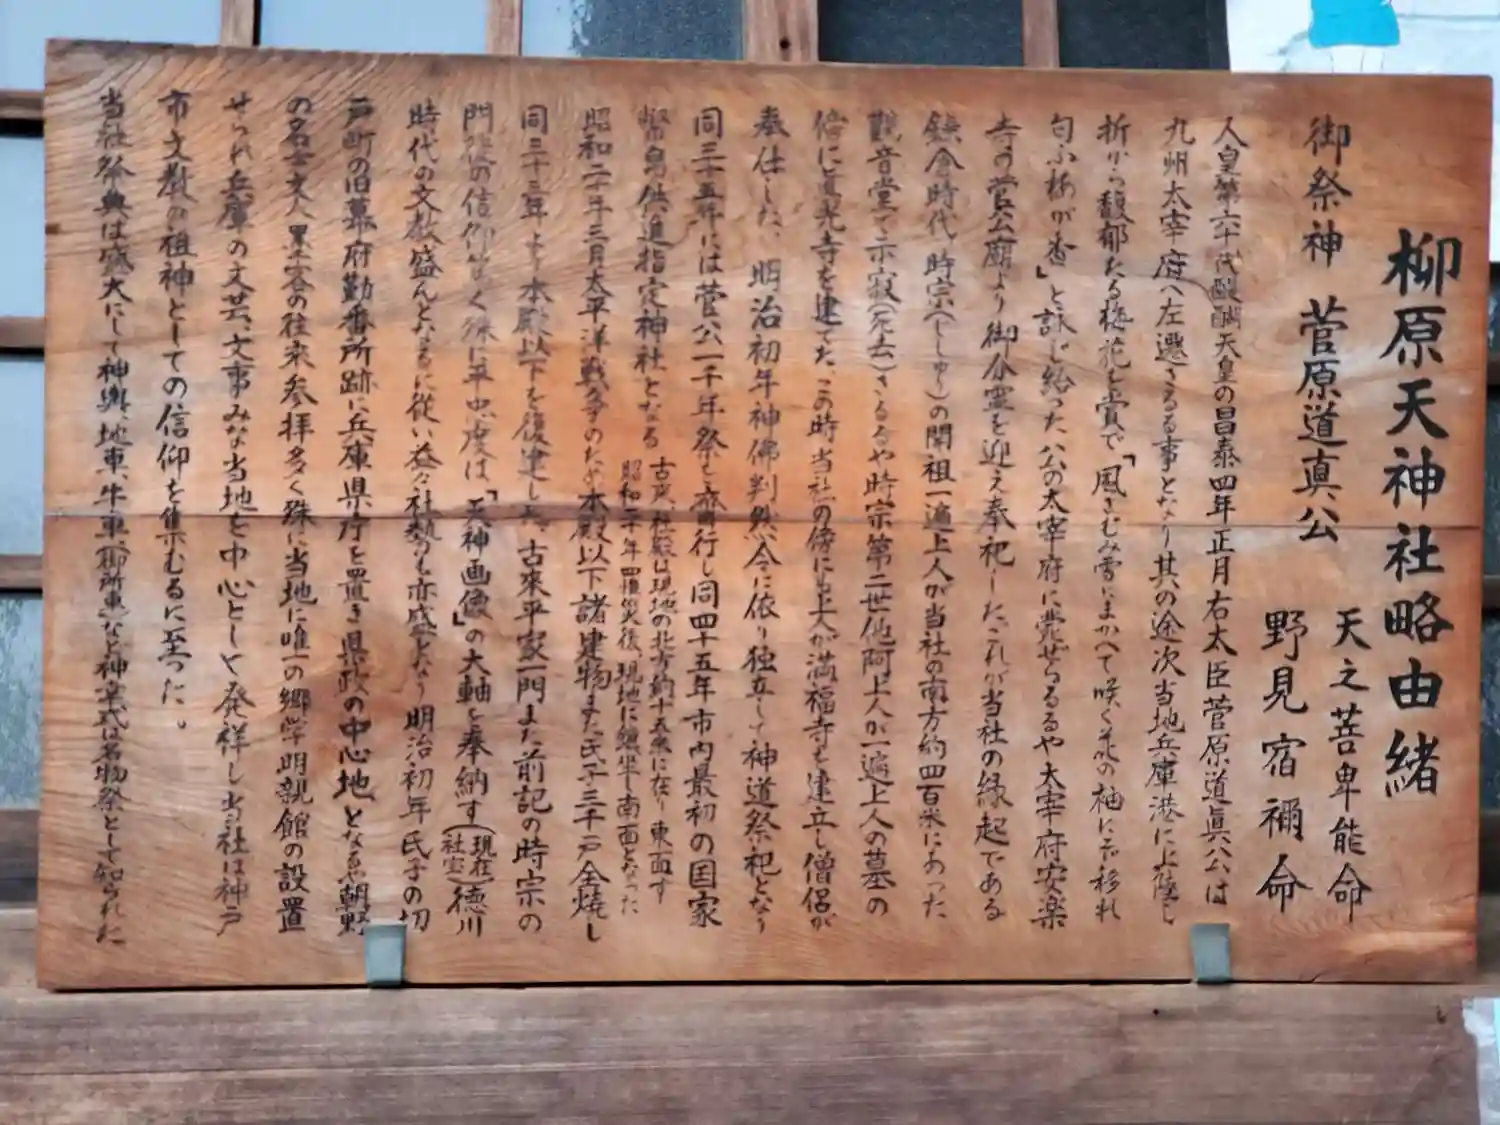 柳原天神社略由緒
御祭神 菅原道真公
天之菩卑能命
野見宿禰命
人皇第六十代醍醐天皇の昌泰四年正月右太臣菅原道眞公は
九州太宰府へ左遷さるる事となり其の途次当地兵庫港に上陸し
折から馥郁たる梅花を賞で「風さむみ雪にまかへて咲く花の袖にぞ移れ
匂ふ梅が香」と詠じ給った 公の太宰府に薨ぜらるるや太宰府安楽
寺の菅公廟より御分霊を迎え奉祀した、これが当社の縁起である
鎌倉時代、時宗(じしゅう)の開祖一遍上人が当社の南方約四百米にあった
觀音堂で示寂(死去)さるるや時宗第二世他阿上人が一遍上人の墓の
傍に真光寺を建てた この時当社の傍にも上人が満福寺を建立し僧侶が
奉仕した、明治初年神佛判然令に依り独立して神道祭祀となり
同三十五年には菅公一千年祭を斎行し同四十五年市内最初の国家
幣帛供進指定神社となる 古来、社殿は現地の北方約十五米に在り東面す
昭和二十年罹災後、現地に遷坐し南面となった
昭和二十年三月太平洋戦争のため本殿以下諸建物また氏子三千戸全焼し
同三十三年より本殿以下を復建した、古来平家一門また前記の時宗の
門徒の信仰篤く殊に平忠度は「天神画像」の大軸を奉納す(現在社宝)徳川
時代の文教盛んとなるに従い益々社勢も亦盛となり明治初年氏子の切
戸町の旧幕府勤番所跡に兵庫県庁を置き県政の中心地となるや朝野
の名士文人墨客の往来参拝多く殊に当地に唯一の郷学明親館の設置
せられ兵庫の文芸、文事みな当地を中心として発祥し当社は神戸
市文教の祖神としての信仰を集むるに至った。
当社祭典は盛大にして神輿、地車、牛車(御所車)など神幸式は名物祭として知られた